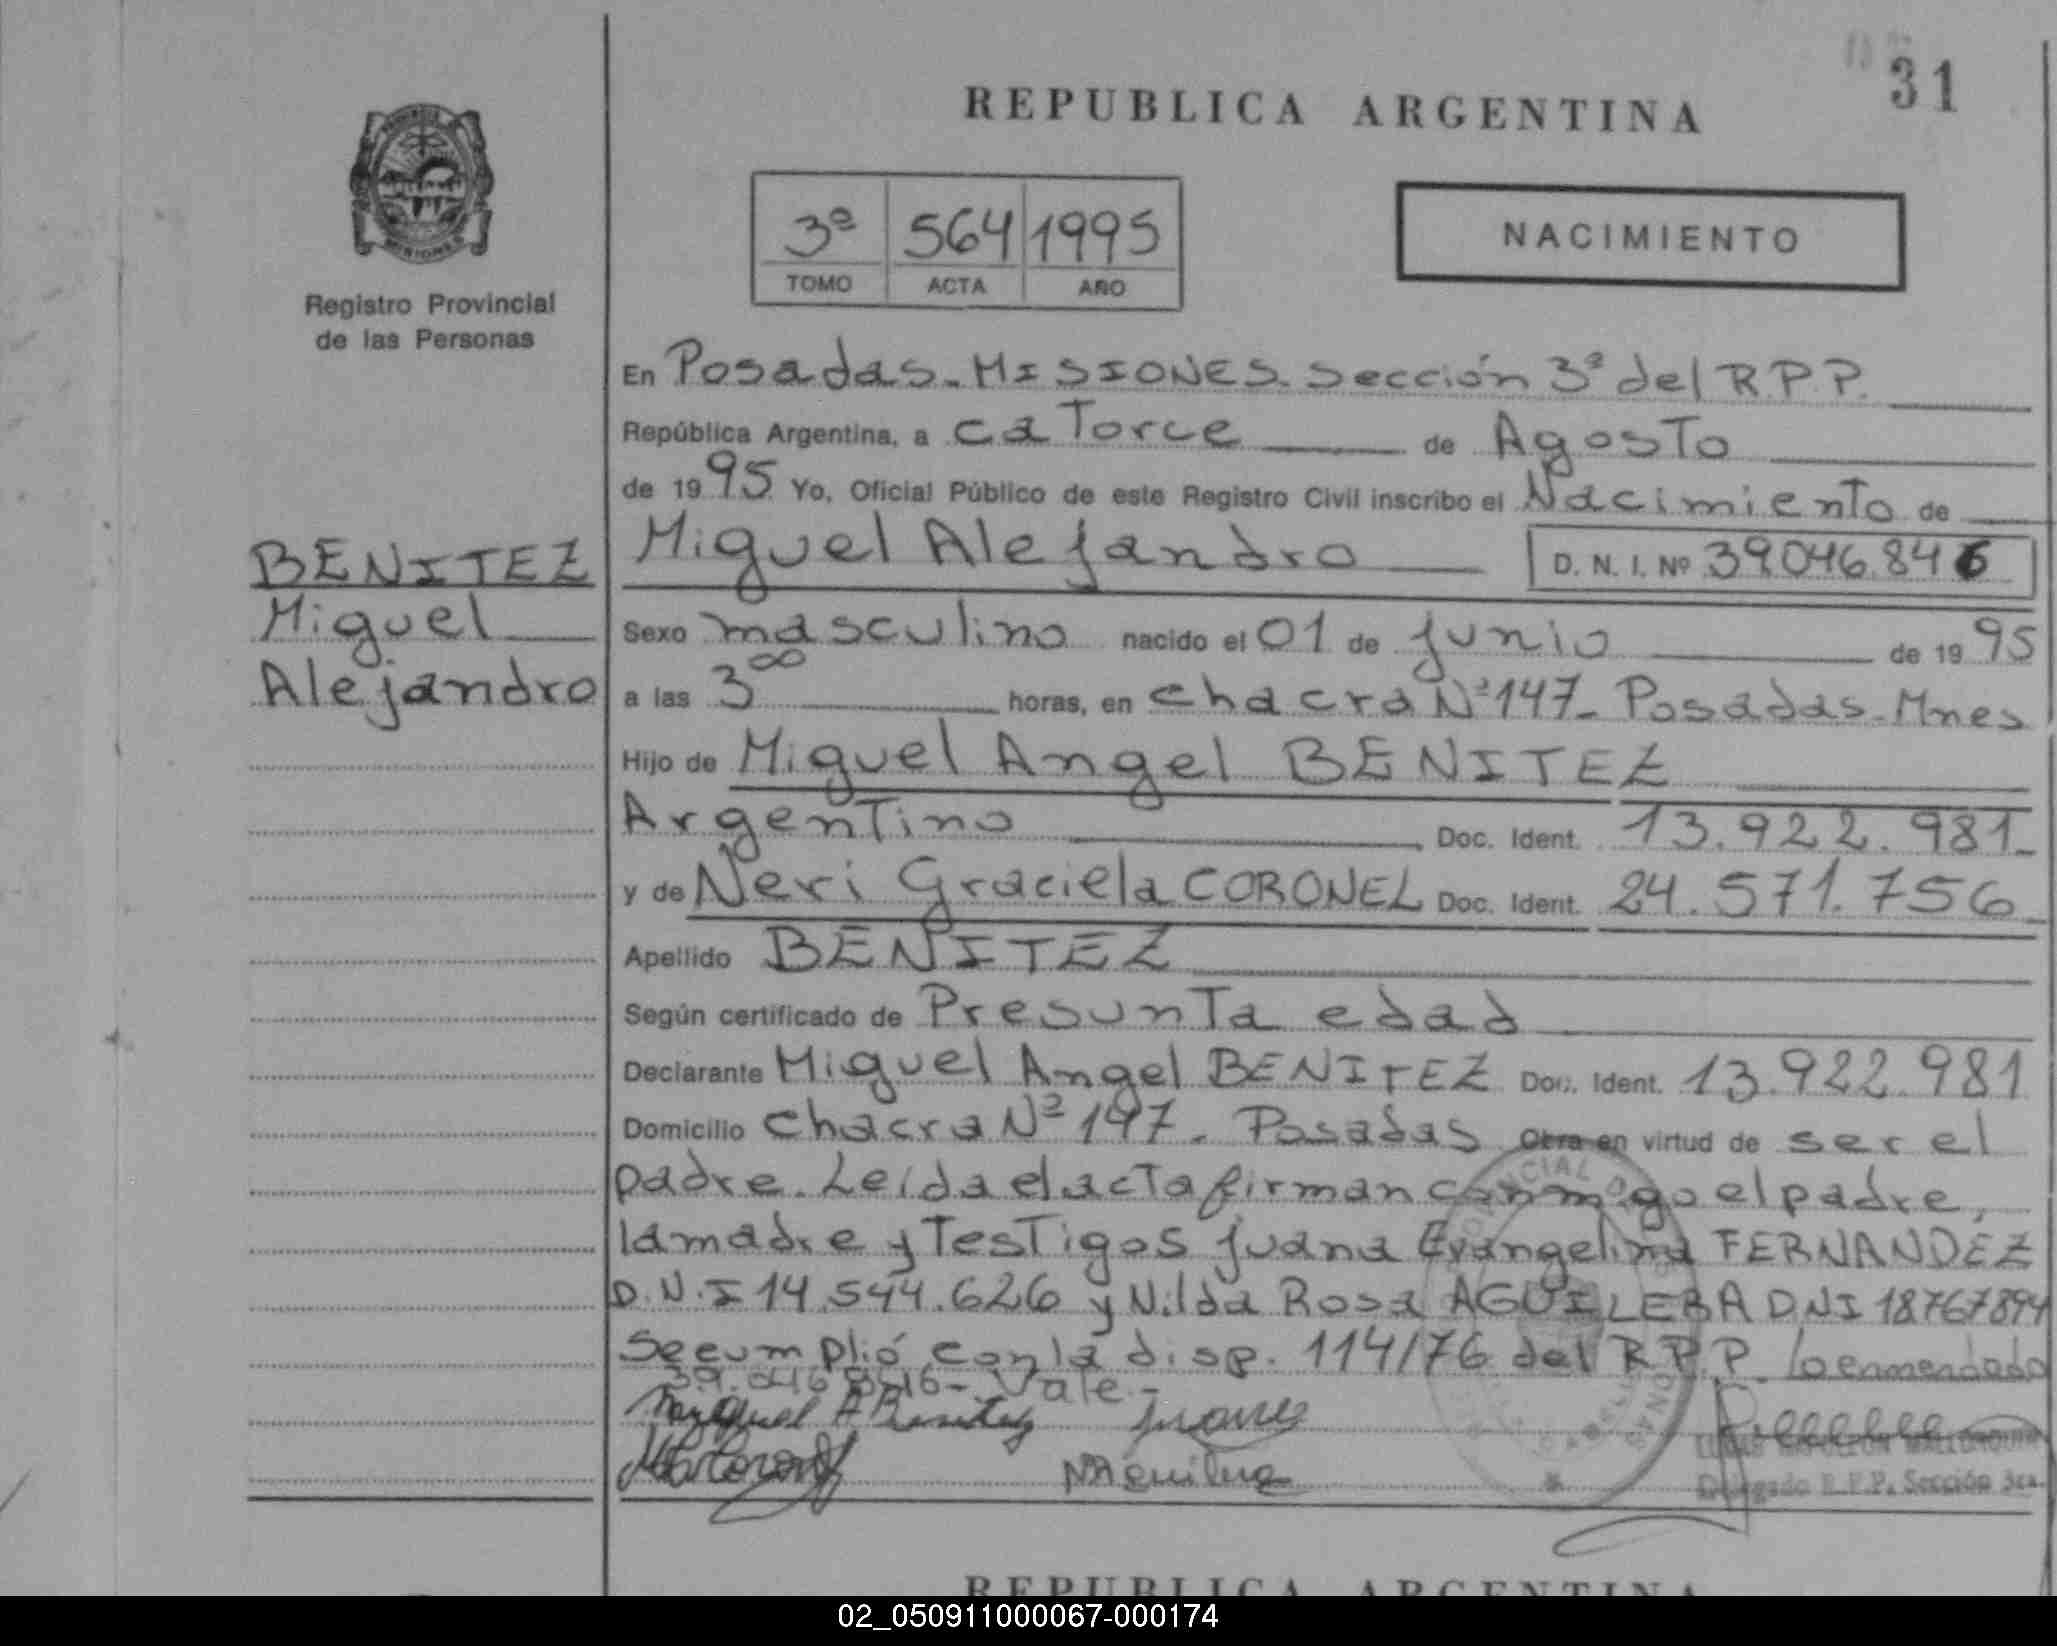 31
REPUBLICA ARGENTINA
3ª 564 1995
TOMO ACTA AÑO
NACIMIENTO
Registro Provincial
de las Personas
En Posadas - MISIONES. sección 3ª del R.P.P.
República Argentina, a catorce de Agosto
de 1995 Yo, Oficial Público de este Registro Civil inscribo el Nacimiento de
BENITEZ
Miguel
Alejandro
Miguel Alejandro D. N. I. Nº 39.046.846
Sexo masculino nacido el 01 de junio de 1995
a las 3⁰⁰ horas, en chacra Nº 147 - Posadas - Mnes
Hijo de Miguel Angel BENITEZ
Argentino Doc. Ident. 13.922.981
y de Neri Graciela CORONEL Doc. Ident. 24.571.756
Apellido BENITEZ
Según certificado de Presunta edad
Declarante Miguel Angel BENITEZ Doc. Ident. 13.922.981
Domicilio chacra Nº 147 - Posadas Obra en virtud de ser el
padre. Leída el acta firman conmigo el padre,
la madre y testigos juana Evangelina FERNANDEZ
D.N.I 14.544.626 y Nilda Rosa AGUILERA DNI 18767894
Se cumplió con la disp. 114/76 del R.P.P. lo enmendado
39.046.846 - Vale -
Miguel A Benitez
Delegado R.P.P. Sección 3ra.
REPUBLICA ARGENTINA
02_050911000067-000174